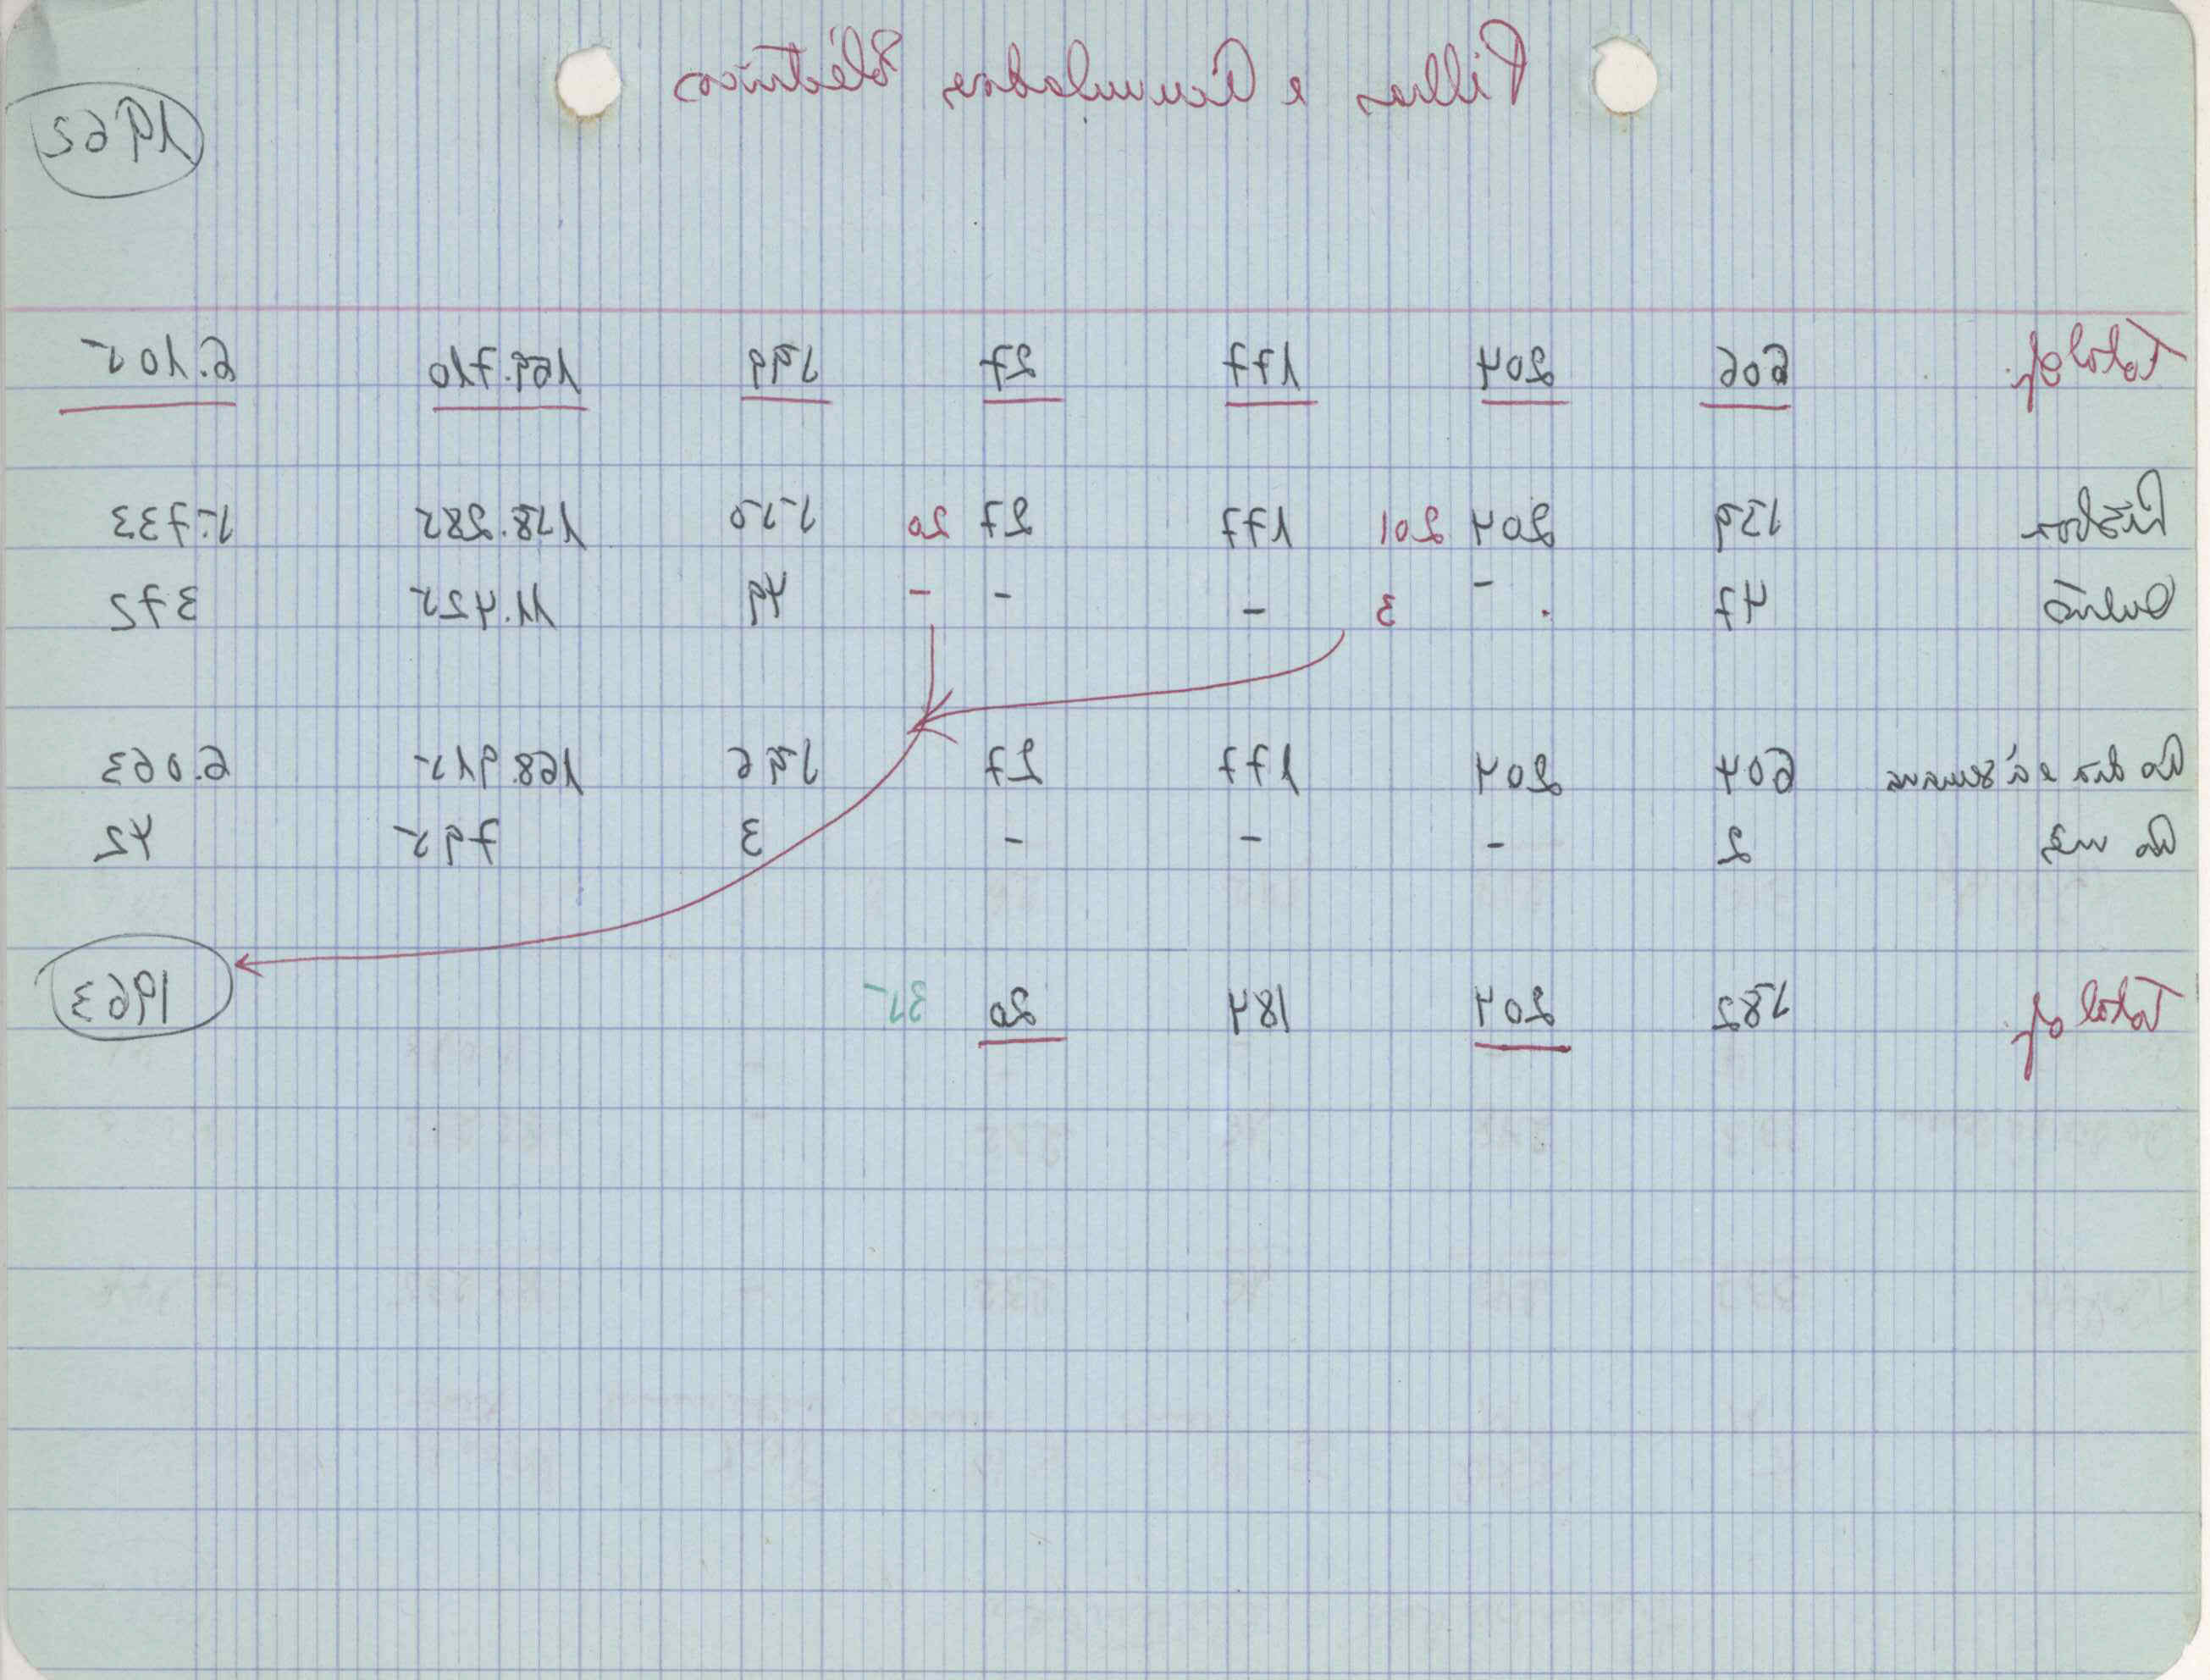 Pilhas e Acumuladores Eléctricos
1962
Total gf. 606 204 177 27 599 169.710 6.105
Lisboa 559 204 201 177 27 20 550 158.285 5.733
47 - 3 - - - 49 11.425 372
Ao dia e à semana 604 204 177 27 596 168.915 6.063
Ao mês 2 - - - 3 795 42
Total gf. 582 204 184 20 35 1963